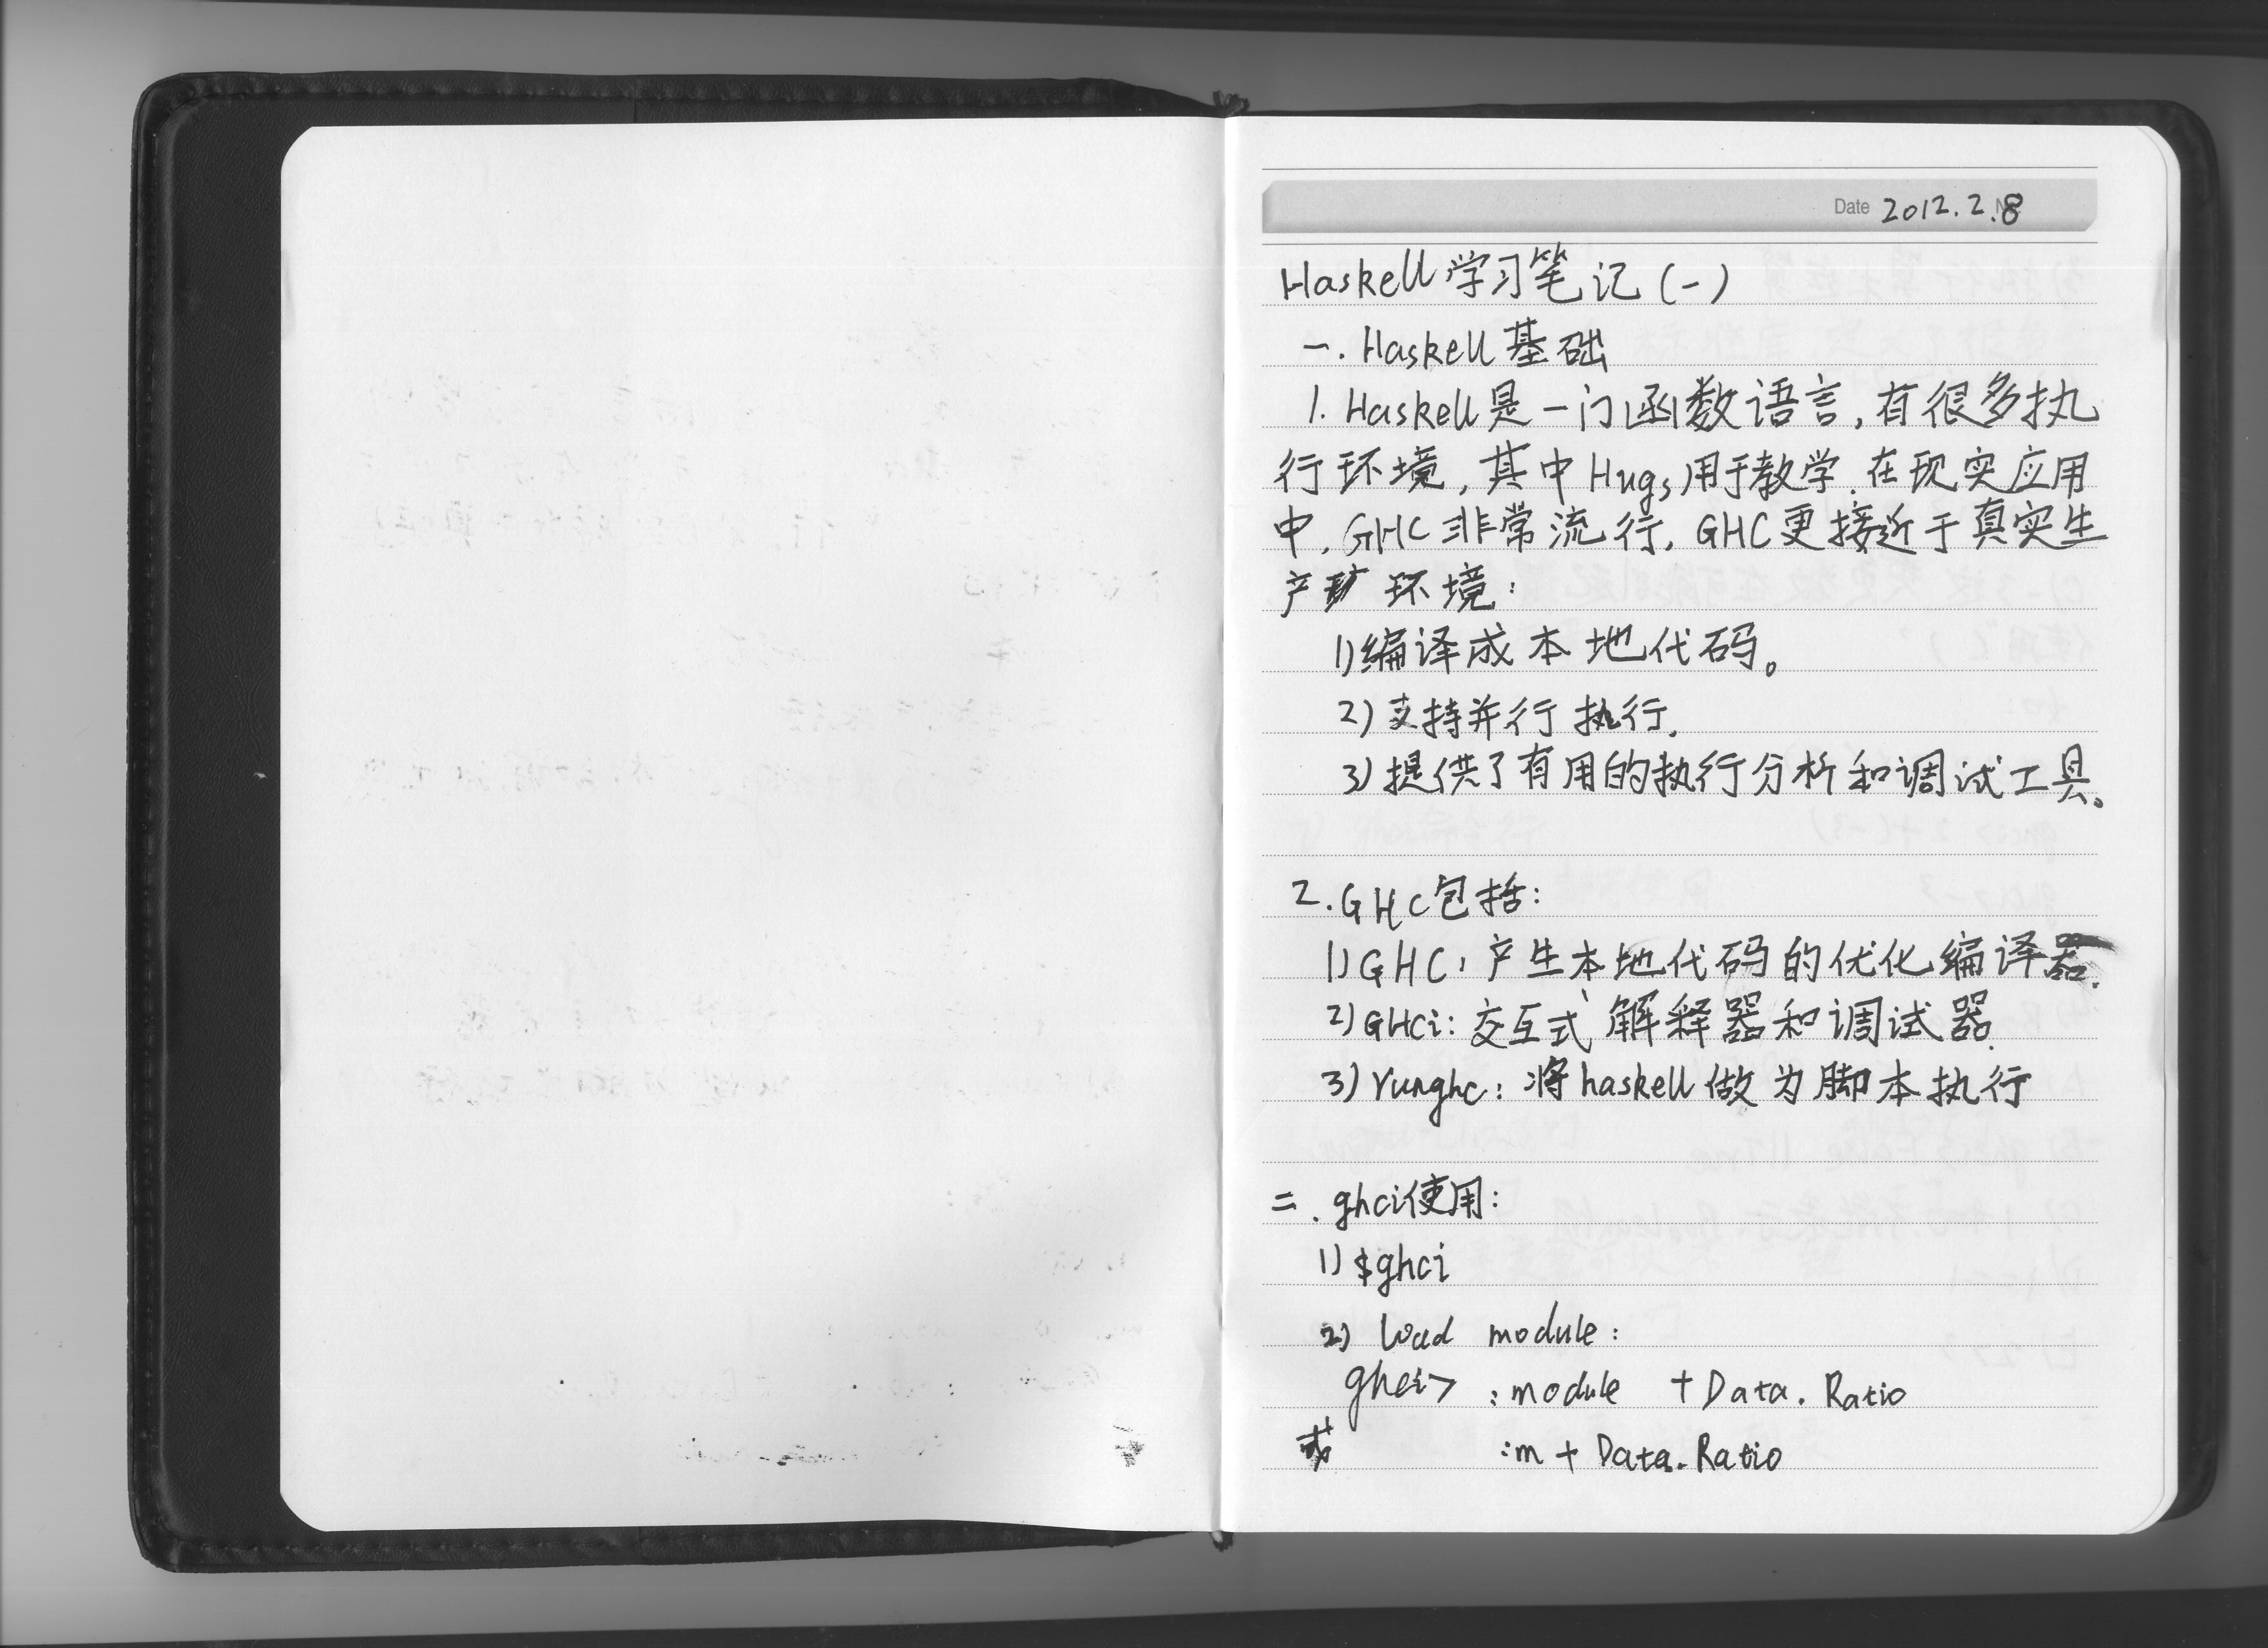 Date 2012.2.8
Haskell学习笔记(一)
一.Haskell基础
1.Haskell是一门函数语言,有很多执
行环境,其中Hugs用于教学.在现实应用
中,GHC非常流行,GHC更接近于真实生
产环境:
1)编译成本地代码。
2)支持并行执行.
3)提供了有用的执行分析和调试工具。
2.GHC包括:
1)GHC:产生本地代码的优化编译器.
2)GHCi:交互式解释器和调试器.
3)runghc:将haskell做为脚本执行
二.ghci使用:
1)$ghci
2) load module:
ghci> :module +Data.Ratio
或 :m + Data.Ratio